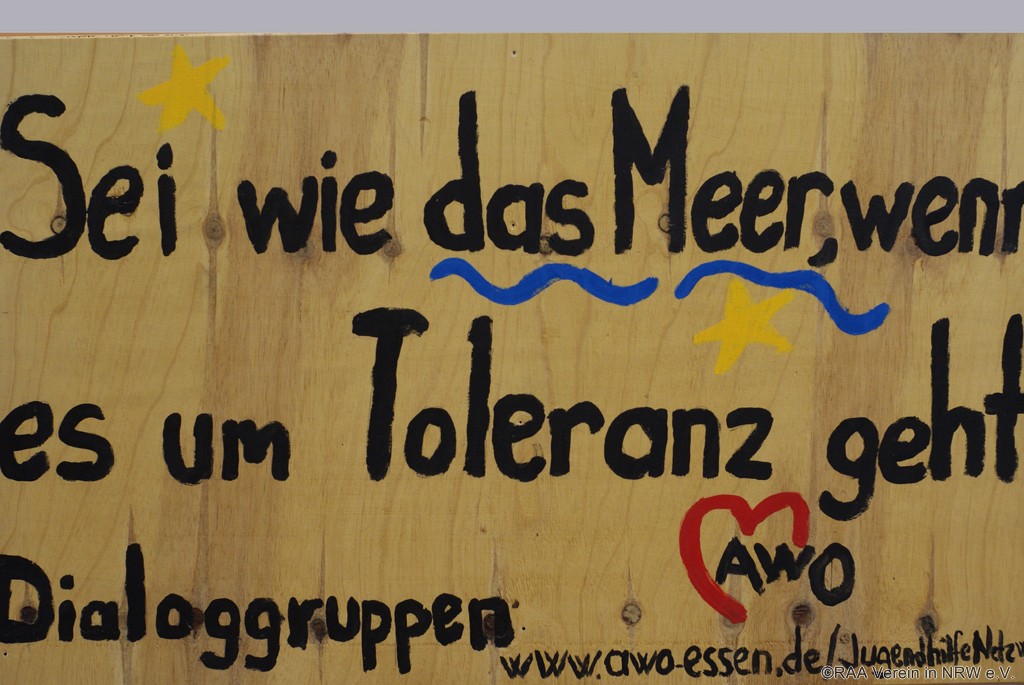 Sei wie das Meer, wenn
es um Toleranz geht
AWO
Dialoggruppen
www.awo-essen.de/JugendhilfeNetzw
©RAA Verein in NRW e.V.